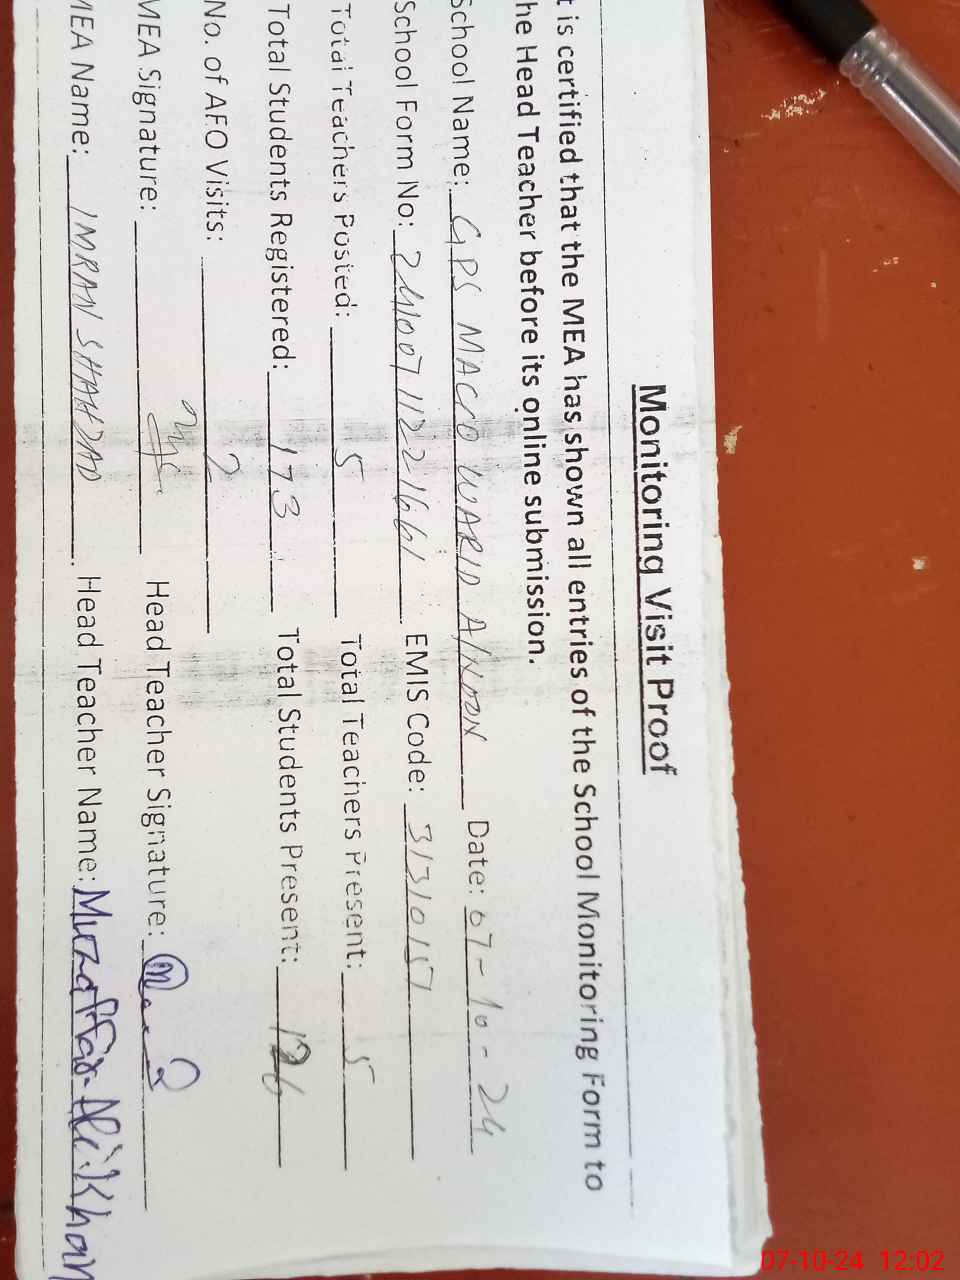 Monitoring Visit Proof
t is certified that the MEA has shown all entries of the School Monitoring Form to
he Head Teacher before its online submission.
School Name: GPS MACRO WARID A/XOON Date: 07-10-24
School Form No: 24100711221661 EMIS Code: 31310157
Total Teachers Posted: 5 Total Teachers Present: 5
Total Students Registered: 173 Total Students Present: 126
No. of AEO Visits: 2
MEA Signature: Head Teacher Signature:
MEA Name: IMRAN SHAHZAD Head Teacher Name: Muzaffar Ali Khan
07-10-24 12:02